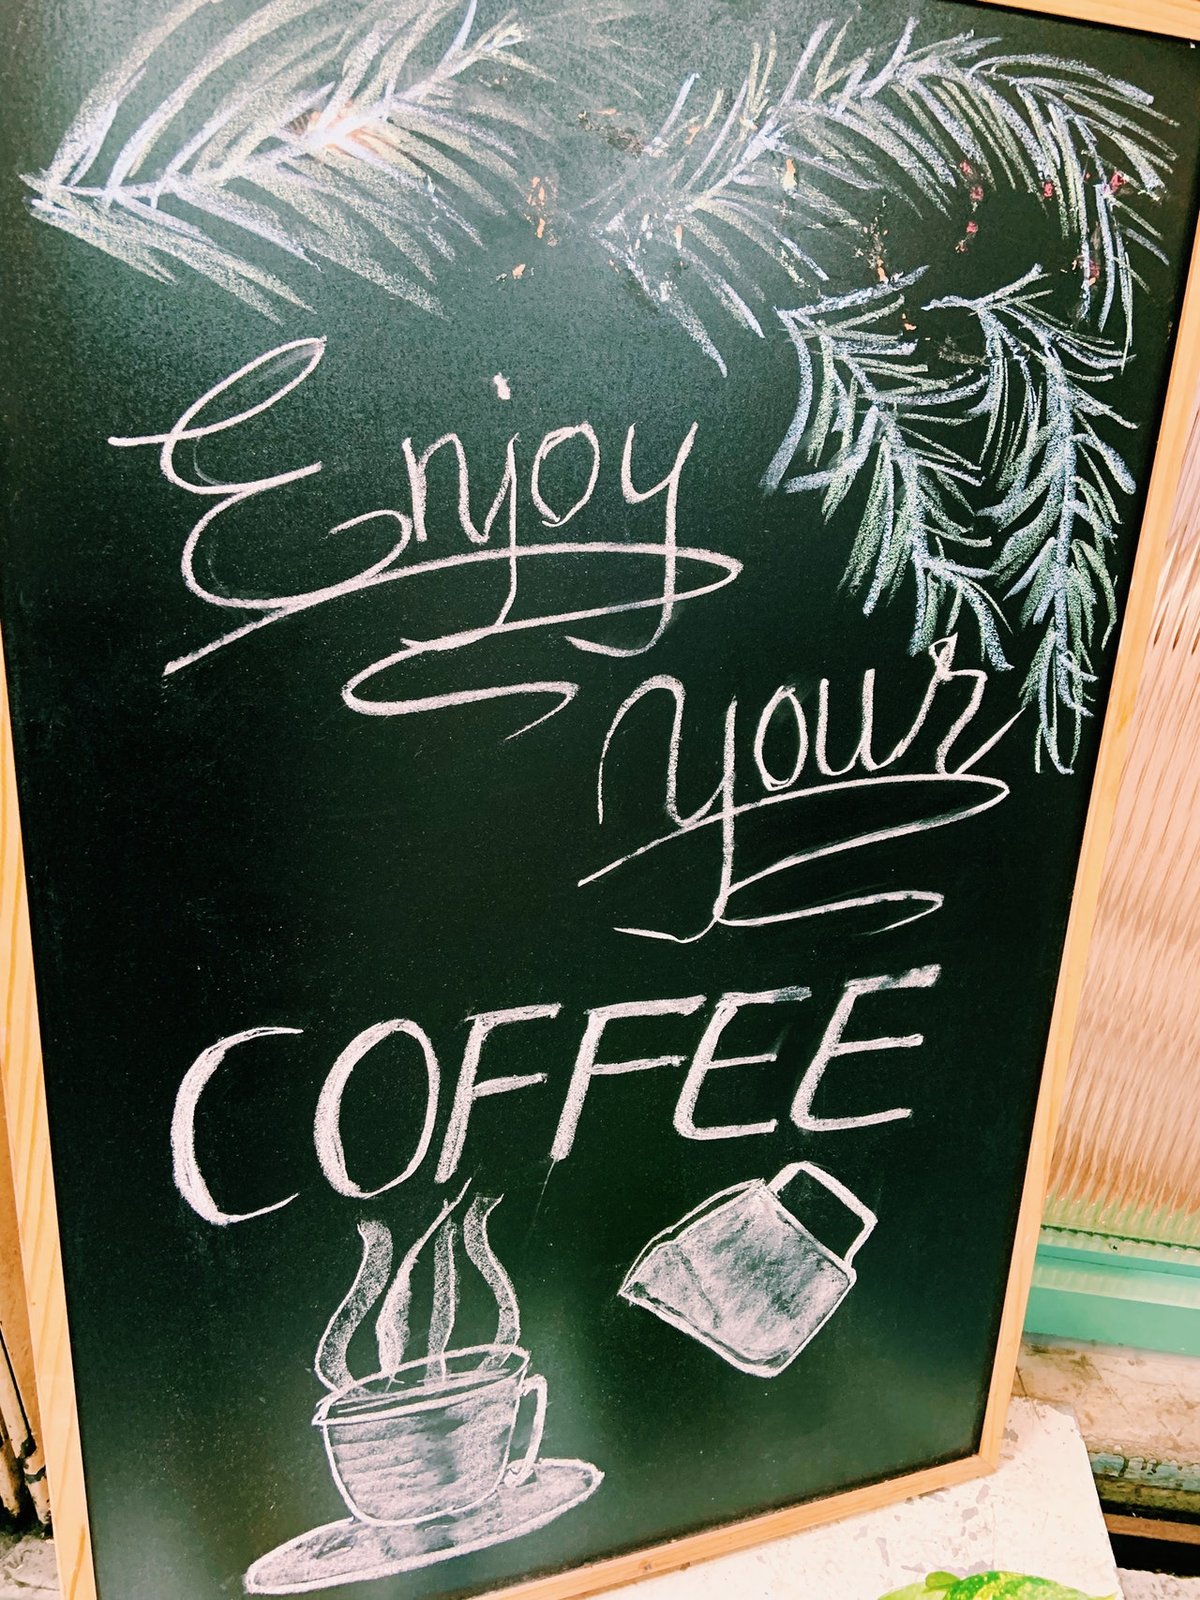 Enjoy
your
COFFEE